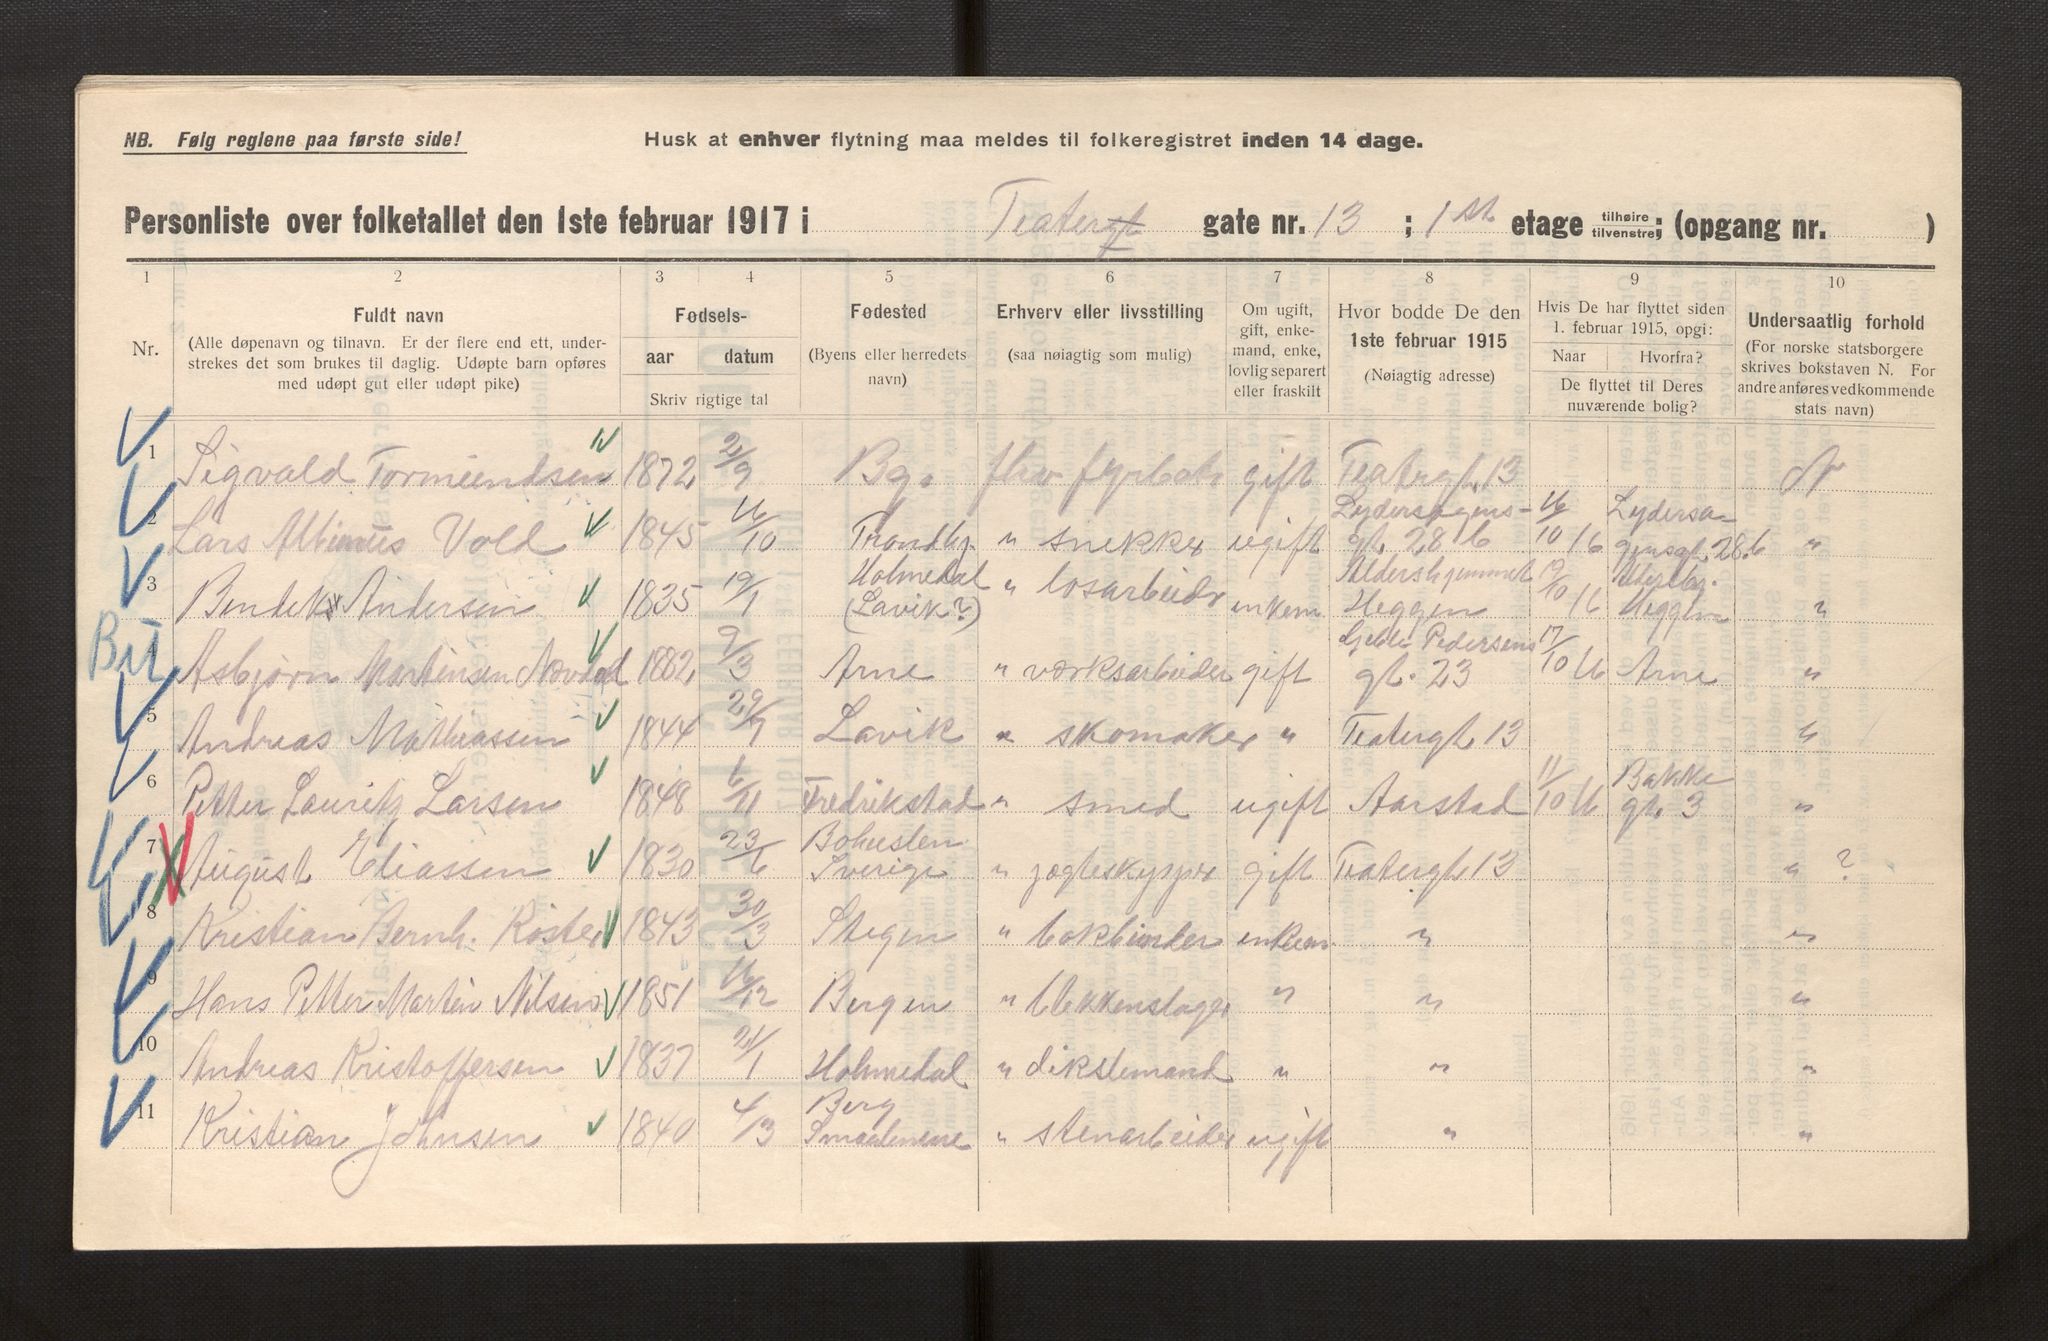 NB. Følg reglene paa første side!
Husk at enhver flytning maa meldes til folkeregistret inden 14 dage.
Personliste over folketallet den 1ste februar 1917 i Teatergt gate nr. 13 ; 1st etage tilhøire tilvenstre; (opgang nr. )
1 2 3 4 5 6 7 8 9 10
Nr.
Fuldt navn
(Alle døpenavn og tilnavn. Er der flere end ett, under-
strekes det som brukes til daglig. Udøpte barn opføres
med udøpt gut eller udøpt pike)
Fødsels-
aar datum
Skriv rigtige tal
Fødested
(Byens eller herredets
navn)
Erhverv eller livsstilling
(saa nøiagtig som mulig)
Om ugift,
gift, enke-
mand, enke,
lovlig separert
eller fraskilt
Hvor bodde De den
1ste februar 1915
(Nøiagtig adresse)
Hvis De har flyttet siden
1. februar 1915, opgi:
Naar Hvorfra?
De flyttet til Deres
nuværende bolig?
Undersaatlig forhold
(For norske statsborgere
skrives bokstaven N. For
andre anføres vedkommende
stats navn)
1 Sigvald Tormundsen 1872 2/9 Bg. fhv fyrbøter gift Teatergt. 13 N
2 Lars Albinus Vold 1845 16/10 Trondhj. " snekker ugift Lydersagens-
gt. 28 b 16/10 16 Lydersa-
gensgt. 28 b "
3 Bendik Andersen 1835 19/1 Holmedal
(Lavik?) " løsarbeider enkem Aldershjemmet
Heggen 19/10 16 Aldershj.
Heggen "
But
4 Asbjørn Martinsen Nævdal 1882 9/3 Arne " værksarbeider gift Gjeble Pedersens
gt. 23 17/10 16 Arne "
5 Andreas Mathiassen 1844 29/7 Lavik " skomaker " Teatergt 13 "
6 Petter Lauritz Larsen 1848 6/11 Fredrikstad " smed ugift Aarstad 11/10 16 Bakke
gt. 3 "
7 August Eliassen 1830 23/6 Bohuslen
Sverige " jagteskipper gift Teatergt 13 " ?
8 Kristian Bernh. Røster 1843 30/3 Stegen " bokbinder enkem " "
9 Hans Petter Martin Nilsen 1851 16/12 Bergen " blikkenslager " " "
10 Andreas Kristoffersen 1837 21/1 Holmedal " dikstemand " " "
11 Kristian Johnsen 1840 4/3 Berg
Smaalenene " stenarbeider ugift " "